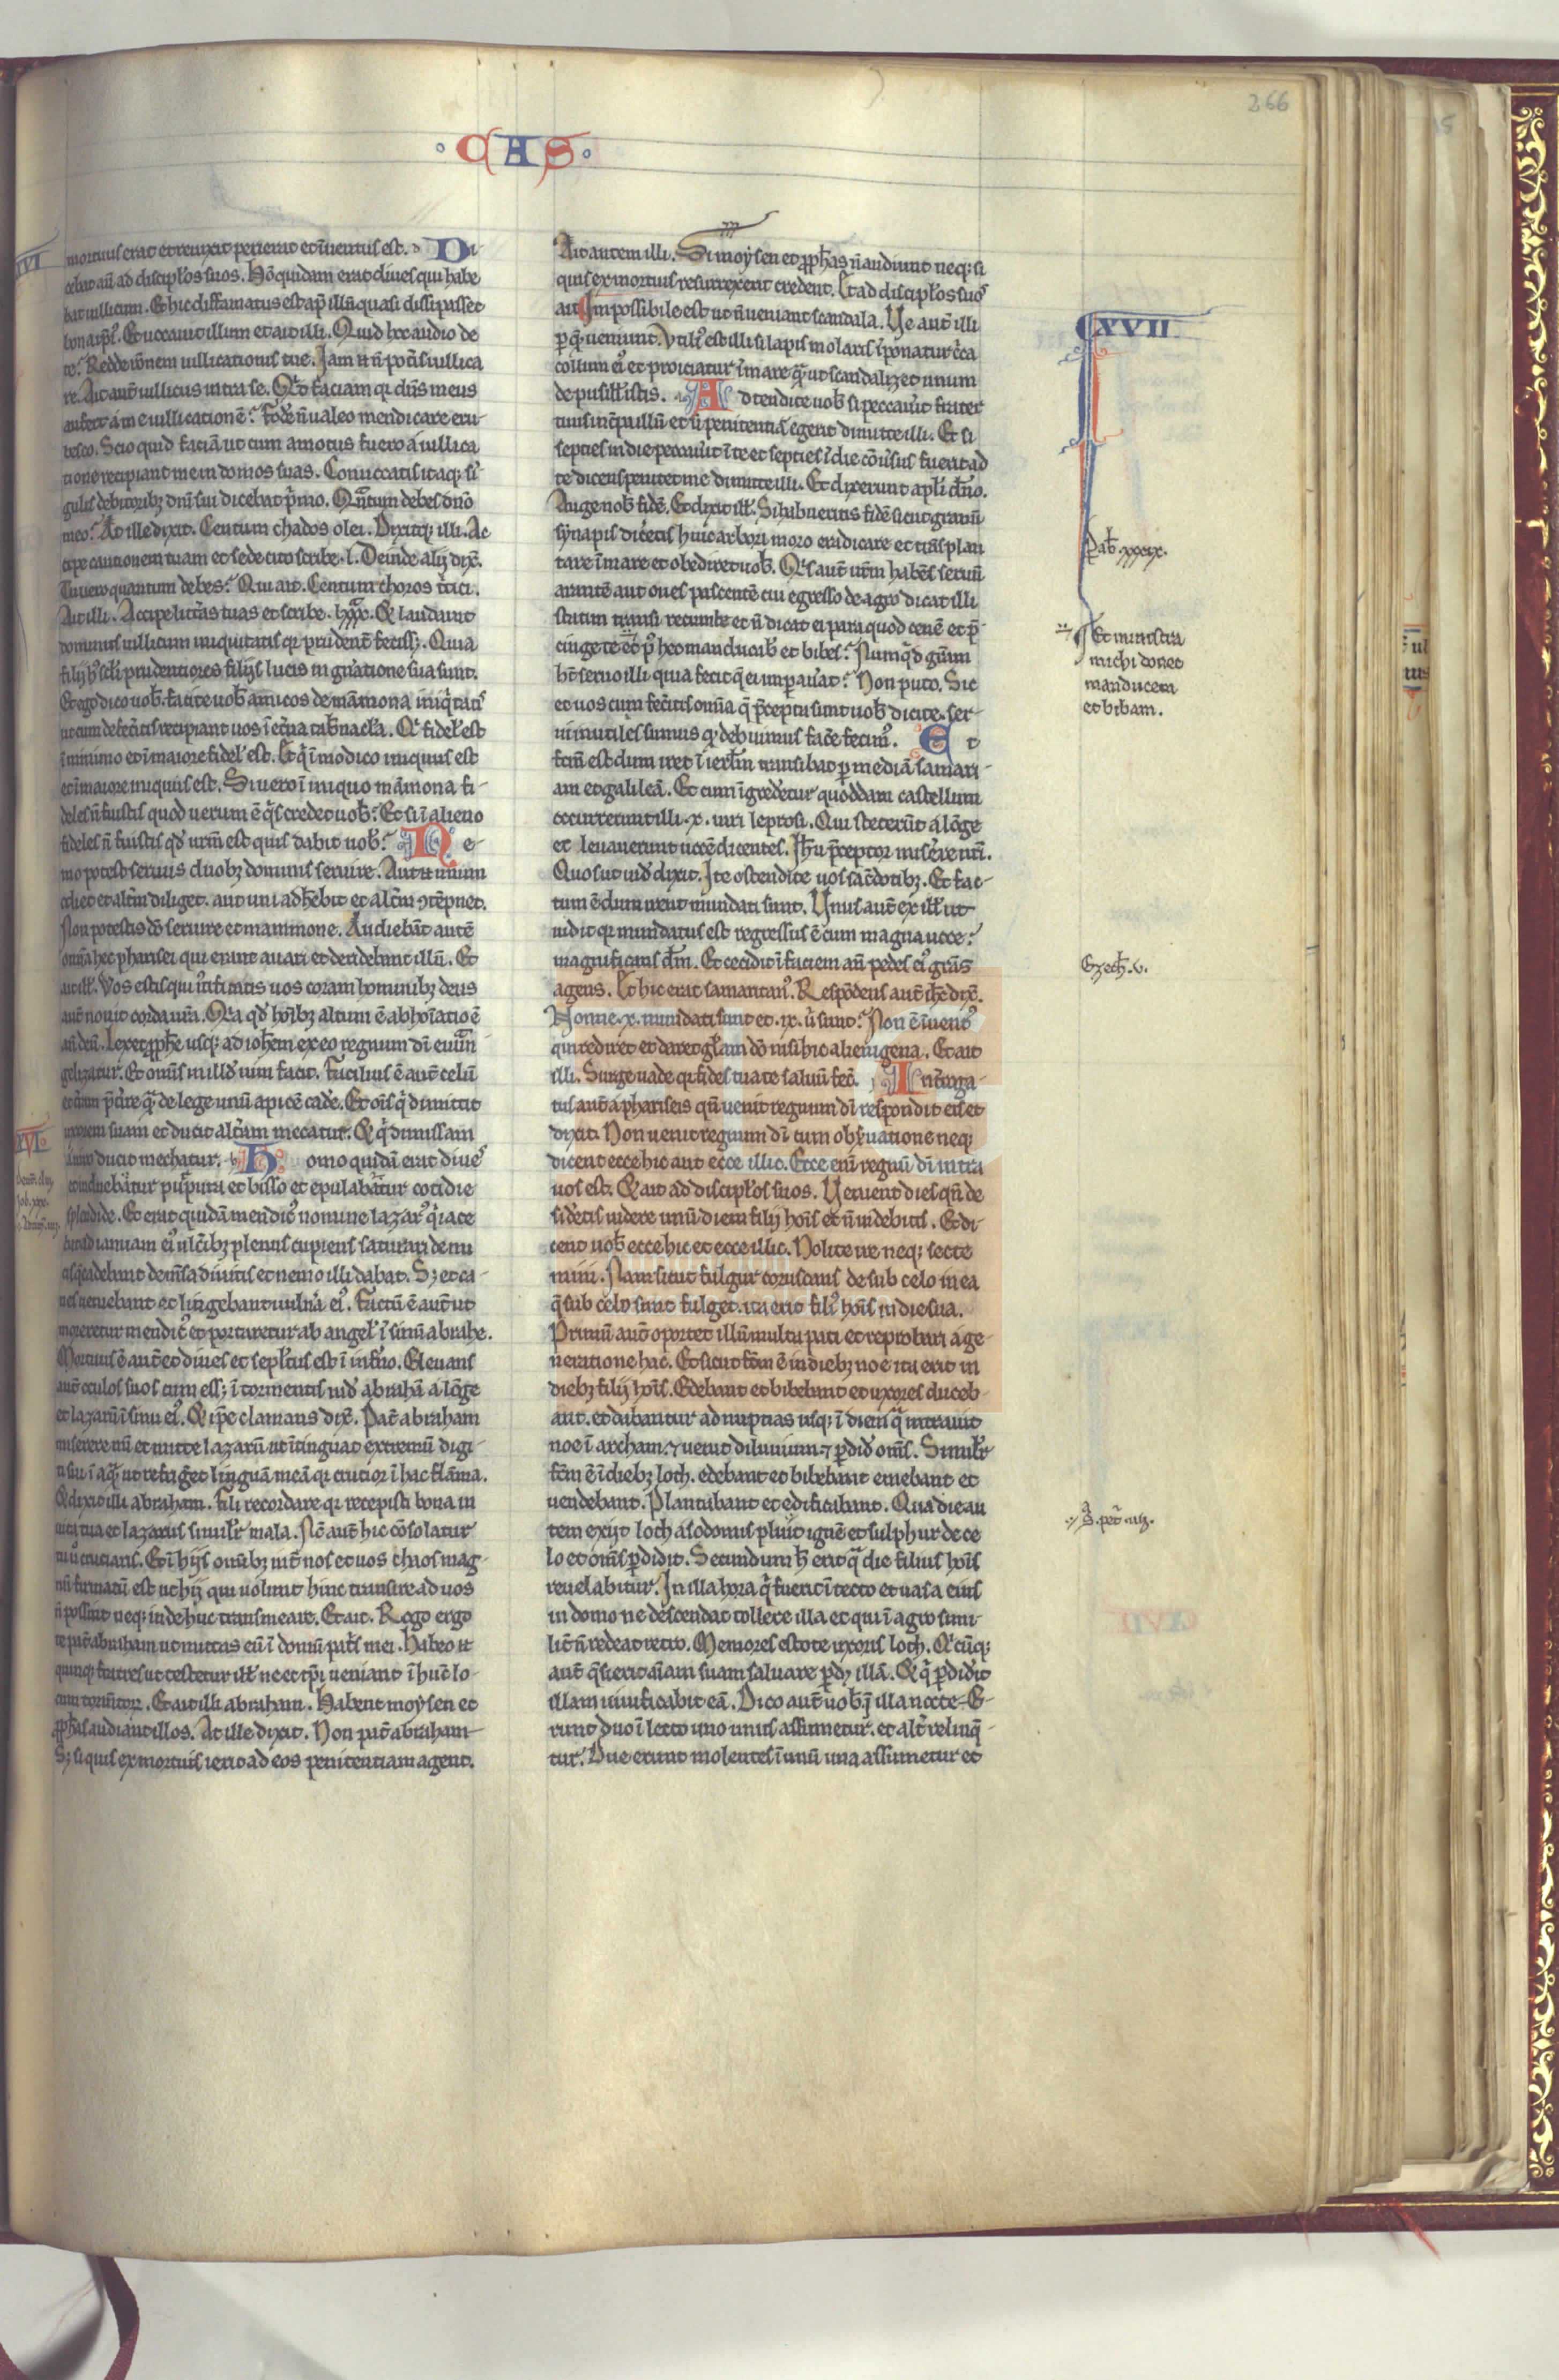 266
CAS
mortuus erat et reuixit perierat et īuentus est. Di
cebat aū ad discipłos suos. Hō quidam erat diues qui habe
bat uillicum. Et hic diffamatus est ap̄ illū quasi dissipasset
bona ip̄i'. Et uocauit illum et ait illi. Quid hoc audio de
te? Redde rōnem uillicationis tue. Jam n̄ pot̄is uillica
re. Ait aūt uillicus intra se. Qͥd faciam qͥ dn̄s meus
aufert a me uillicationē? Fod̄e n̄ ualeo mendicare eru-
besco. Scio quid faciā ut cum amotus fuero a uillica
tione recipiant me in domos suas. Conuocatis itaqȝ sī
gulis debitoribȝ dn̄i sui dicebat p̄mo. Qn̄tum debes dn̄o
meo? At ille dixit. Centum chados olei. Dixitqȝ illi. Ac
cipe cautionem tuam et sede cito scribe .l. Deinde alij dix̄.
Tu uero quantum debes? Qui ait. Centum choros t̄tici.
Ait illi. Accipe litt̄as tuas et scribe .lxxx. Et laudauit
dominus uillicum iniquitatis qͥ prudent̄ fecissȝ. Quia
filij hͥ sc̄li prudentiores filijs lucis in gn̄atione sua sunt.
Et ego dico uob̄. facite uob̄ amicos de māmona iniqͥtatis
ut cum defec̄itis recipiant uos ī et̄na tab̄nac̄la. Qͥ fidel' est
ī minimo et ī maiore fidel' est. Et qͥ ī modico iniquus est
et ī maiore iniquus est. Si uero ī iniquo māmona fi-
deles n̄ fuistis quod uerum ē qͥs credet uob̄? Et si ī alieno
fideles n̄ fuistis qd̄ ur̄m est quis dabit uob̄? Ne-
mo potest seruus duobȝ dominis seruire. Aut n̄ unum
odiet et alt̄m diliget. aut uni adh̄ebit et alt̄m ꝯtēpnet.
Non potestis dō seruire et mammone. Audiebāt autē
om̄ia hec pharisei qui erant auari et deridebant illū. Et
ait ill'. Vos estis qui iͥtificatis uos coram hominibȝ deus
aūt nouit corda ur̄a. Qͥa qd̄ hōibȝ altum ē abhoīatio ē
an̄ deū. Lex et ꝓph̄e usqȝ ad ioh̄em ex eo regnum dī euan-
gelizatur. Et omīs in illd̄ uim facit. Facilius ē aūt celū
et t̄ram p̄t̄ire qͣ de lege unū apicē cad̄e. Et oīs qͥ dimittit
uxorem suam et ducit alt̄am mecatur. Et qͥ dimissam
a uiro ducit mechatur. Homo quidā erat diues
et induebatur purpura et bisso et epulabatur cotidie
splendide. Et erat quidā mendicꝰ nomine lazarꝰ qͥ iace
bat ad ianuam eiꝰ ulc̄ibȝ plenus cupiens saturari de mi
cis q̄ cadebant de mēsa diuitis et nemo illi dabat. Sȝ et ca-
nes ueniebant et lingebant uuln̄a eiꝰ. Factū ē aūt ut
moreretur mendicꝰ et portaretur ab angel' ī sinū abrahe.
Mortuus ē aūt et diues et sepl̄tus est ī inf̄no. Eleuans
aūt oculos suos cum essȝ ī tormentis uid̄ abrahā a lōge
et lazarū ī sinu eiꝰ. Et ip̄e clamans dix̄. Pat̄ abraham
miserere mī et mitte lazarū ut ītinguat extremū digi-
ti sui ī aqͣ ut refriḡet linguā meā qͥ crucior ī hac flāma.
Et dixit illi abraham. Fili recordare qͥ recepisti bona in
uita tua et lazarus similr̄ mala. Nc̄ aūt hic cōsolatur
tu ū cruciaris. Et ī hijs omībȝ int̄ nos et uos chaos mag-
nū firmatū est ut hij qui uolunt hinc transire ad uos
n̄ possint neqȝ inde huc transmeare. Et ait. Rogo ergo
te pat̄ abraham ut mittas eū ī domū pat̄s mei. Habeo n̄
quinqȝ fratres ut testetur ill' ne et ip̄i ueniant ī hūc lo-
cum tormētor̄. Et ait illi abraham. Habent moysen et
ꝓph̄as audiant illos. At ille dixit. Non pat̄ abraham
Sȝ si quis ex mortuis ierit ad eos penitentiam agent.
Ait autem illi. Si moysen et ꝓph̄as n̄ audiunt neqȝ si
quis ex mortuis resurrexerit credent. Et ad discipłos suos
ait Impossibile est ut n̄ ueniant scandala. Ve aūt illi
ꝑ qͣ ueniunt. Vtiliꝰ est illi si lapis molaris īponatur c̄ca
collum eiꝰ et proiciatur ī mare qͣ ut scandalizet unum
de pusill' istis. Adtendite uob̄ si peccau̅it frater
tuus inc̄pa illū et si penitentiā egerit dimitte illi. Et si
septies in die peccau̅it ī te et septies ī die cōu̅sus fuerit ad
te dicens penitet me dimitte illi. Et dixerunt apl̄i dn̄o.
Auge nob̄ fidē. Et dixit ill'. Si habueritis fidē sicut granū
synapis dicetis huic arbori moro eradicare et trāsplan
tare ī mare et obediret uob̄. Qͥs aūt ur̄m habēs seruū
arantē aut oues pascentē cui egresso de agro dicat illi
statim transi recumbe et n̄ dicat ei para quod cenē et p̄-
cinge te et pꝰ hec manducab' et bibes? Numqͥd grām
h̄t seruo illi quia fecit q̄ ei imꝑau̅at? Non puto. Sic
et uos cum fec̄itis om̄ia q̄ p̄cepta sunt uob̄ dicite. ser-
ui inutiles sumus qd̄ debuimus fac̄e fecimꝰ. Et
fcm̄ est dum iret ī ierl̄m transibat ꝑ mediā samari-
am et galileā. Et cum īgrederetur quoddam castellum
occurrerunt illi .x. uiri leprosi. Qui steterūt a lōge
et leuauerunt uocē dicentes. Jh̄u p̄ceptor misērere nr̄i.
Quos ut uid̄ dixit. Jte ostendite uos sac̄dotibȝ. Et fac-
tum ē dum irent mundati sunt. Vnus aūt ex ill' ut
uidit qͥ mundatus est regressus ē cum magna uoce
magnificans dm̄. Et cecidit ī faciem an̄ pedes eiꝰ gr̄as
agens. Et hic erat samaritanꝰ. Respōdens aūt ih̄c dix̄.
Nonne .x. mundati sunt et .ix. ū sunt? Non ē īuentꝰ
qui rediret et daret gl̄am dō nisi hic alienigena. Et ait
illi. Surge uade qͥ fides tua te saluū fec̄. Int̄roga-
tus aūt a phariseis qn̄ uenit regnum dī respondit eis et
dixit. Non uenit regnum dī cum obs̄uatione neqȝ
dicent ecce hic aut ecce illic. Ecce eni̅ regnū dī intra
uos est. Et ait ad discipłos suos. Venient dies qn̄ de
siderētis uidere unū diem filij hoīs et n̄ uidebitis. Et di-
cent uob̄ ecce hic et ecce illic. Nolite ire neqȝ secte
mini. Nam sicut fulgur coruscans de sub celo in ea
q̄ sub celo sunt fulget. ita erit filiꝰ hoīs in die sua.
Primū aūt oportet illū multa pati et reprobari a ge-
neratione hac. Et sicut fcm̄ ē in diebȝ noe ita erit in
diebȝ filij hoīs. Edebant et bibebant et uxores duceb-
ant. et dabantur ad nuptias usqȝ ī diem qͣ intrauit
noe ī archam. ⁊ uenit diluuium ⁊ ꝑdid̄ omīs. Similr̄
fcm̄ ē ī diebȝ loth. edebant et bibebant emebant et
uendebant. Plantabant et edificabant. Qua die au
tem exijt loth a sodomis pluit ignē et sulphur de ce
lo et omīs ꝑdidit. Secundum h̄ erit qͣ die filius hoīs
reuelabitur. In illa hora qͥ fuerit ī tecto et uasa eius
in domo ne descendat tollere illa et qui ī agro simi-
lit̄ n̄ redeat retro. Memores estote uxoris loth. Qͥcūqȝ
aūt q̄sierit aīam suam saluare ꝑdȝ illā. Et qͥ ꝑdidit
illam uiuificabit eā. Dico aūt uob̄ ī illa nocte E-
runt duo ī lecto uno unus assumetur. et alt̄ relinq̄-
tur. Due erunt molentes ī unū una assumetur et
XVII
Et ministra
michi donec
manducem
et bibam.
Ezech̄. v.